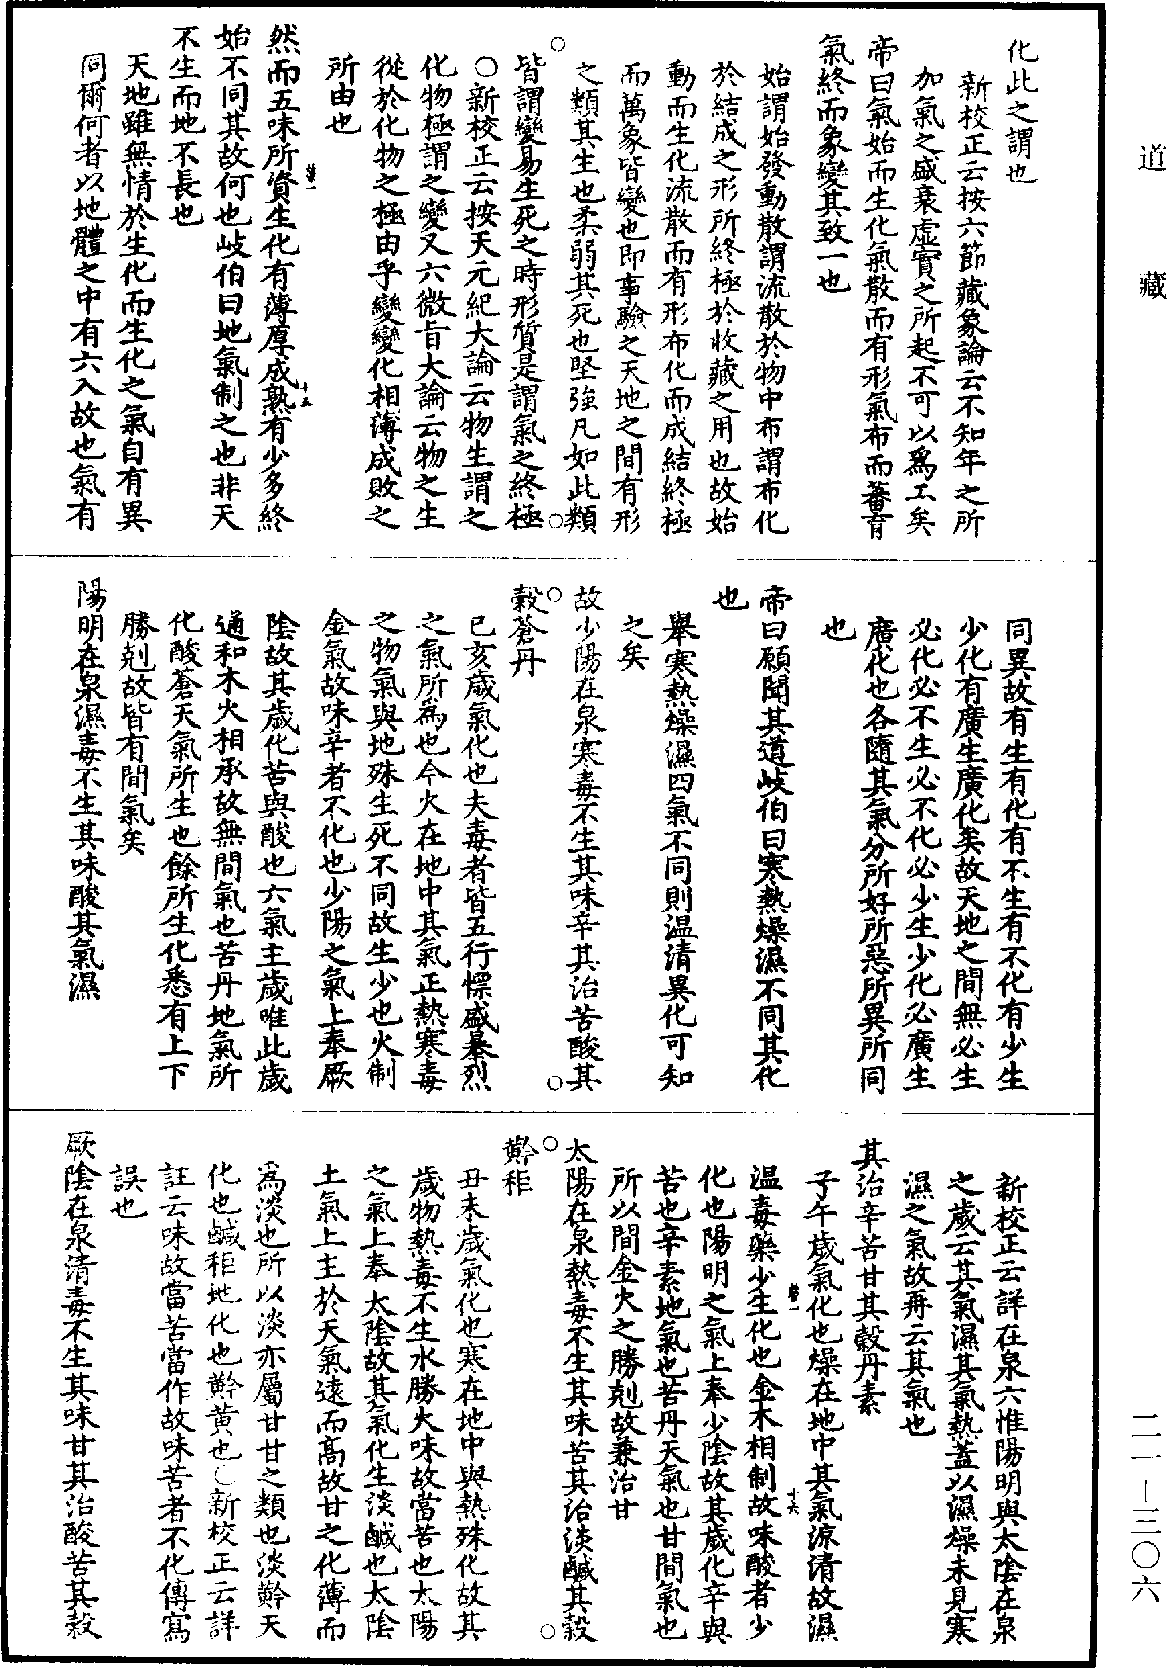 道藏
化此之謂也
新校正云按六節藏象論云不知年之所
加氣之盛衰虛實之所起不可以爲工矣
帝曰氣始而生化氣散而有形氣布而蕃育
氣終而象變其致一也
始謂始發動散謂流散於物中布謂布化
於結成之形所終極於收藏之用也故始
動而生化流散而有形布化而成結終極
而萬象皆變也即事驗之天地之間有形
之類其生也柔弱其死也堅強凡如此類
皆謂變易生死之時形質是謂氣之終極
○新校正云按天元紀大論云物生謂之
化物極謂之變又六微旨大論云物之生
從於化物之極由乎變變化相薄成敗之
所由也
然而五味所資生化有薄厚成熟有少多終
始不同其故何也岐伯曰地氣制之也非天
不生而地不長也
天地雖無情於生化而生化之氣自有異
同爾何者以地體之中有六入故也氣有
同異故有生有化有不生有不化有少生
少化有廣生廣化矣故天地之間無必生
必化必不生必不化必少生少化必廣生
廣化也各隨其氣分所好所惡所異所同
也
帝曰願聞其道岐伯曰寒熱燥濕不同其化
也
舉寒熱燥濕四氣不同則温清異化可知
之矣
故少陽在泉寒毒不生其味辛其治苦酸其
穀蒼丹
巳亥歲氣化也夫毒者皆五行慓盛暴烈
之氣所爲也今火在地中其氣正熱寒毒
之物氣與地殊生死不同故生少也火制
金氣故味辛者不化也少陽之氣上奉厥
陰故其歲化苦與酸也六氣主歲唯此歲
通和木火相承故無間氣也苦丹地氣所
化酸蒼天氣所生也餘所生化悉有上下
勝剋故皆有間氣矣
陽明在泉濕毒不生其味酸其氣濕
新校正云詳在泉六惟陽明與太陰在泉
之歲云其氣濕其氣熱蓋以濕燥未見寒
濕之氣故再云其氣也
其治辛苦甘其穀丹素
子午歲氣化也燥在地中其氣涼清故濕
温毒藥少生化也金木相制故味酸者少
化也陽明之氣上奉少陰故其歲化辛與
苦也辛素地氣也苦丹天氣也甘間氣也
所以間金火之勝剋故兼治甘
太陽在泉熱毒不生其味苦其治淡鹹其穀
黅秬
丑未歲氣化也寒在地中與熱殊化故其
歲物熱毒不生水勝火味故當苦也太陽
之氣上奉太陰故其氣化生淡鹹也太陰
土氣上主於天氣遠而高故甘之化薄而
爲淡也所以淡亦屬甘甘之類也淡黅天
化也鹹秬地化也黅黄也○新校正云詳
註云味故當苦當作故味苦者不化傳寫
誤也
厥陰在泉清毒不生其味甘其治酸苦其穀
二一—三○六